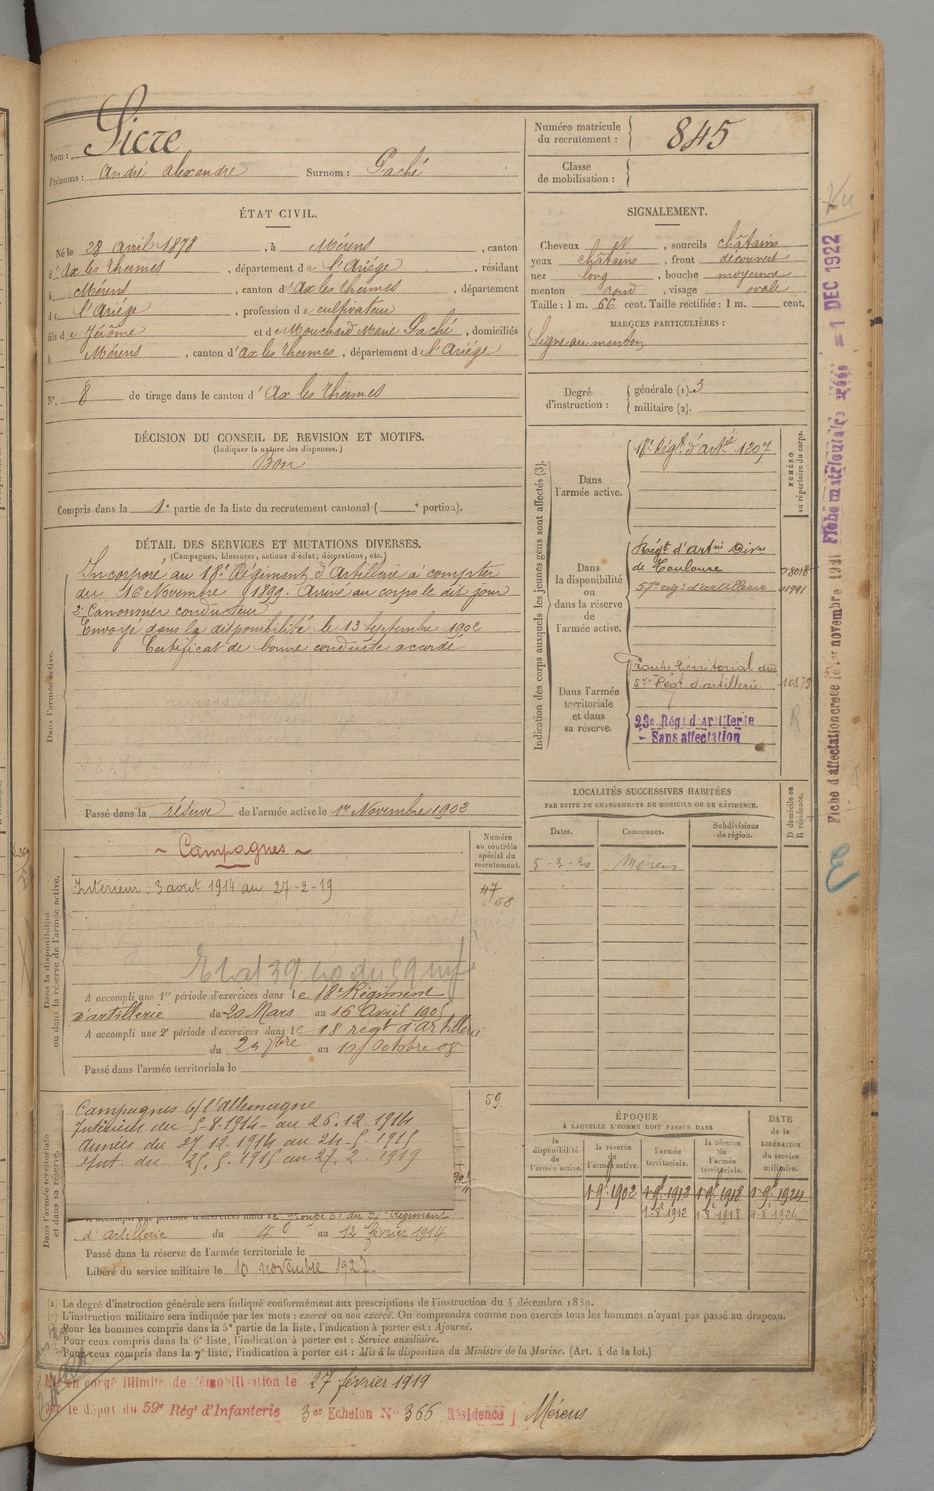 Nom : Sicre
Prénoms : André Alexandre Surnom : Gaché
Numéro matricule du recrutement : 845
Classe de mobilisation :
ÉTAT CIVIL.
Né le 28 avril 1878, à Mérens, canton
d'Ax les Thermes, département de l'Ariége, résidant
à Mérens, canton d'Ax les Thermes, département
de l'Ariége, profession de cultivateur
fils de Jérôme et de Mouchard Marie Gaché, domiciliés
à Mérens, canton d'Ax les Thermes, département de l'Ariége
N° 8 de tirage dans le canton d'Ax les Thermes
SIGNALEMENT.
Cheveux N, sourcils châtains
yeux châtains, front découvert
nez long, bouche moyenne
menton rond, visage ovale
Taille : 1 m. 66 cent. Taille rectifiée : 1 m. cent.
MARQUES PARTICULIÈRES :
Signe au menton
Degré d'instruction : générale (1). 3
militaire (2).
DÉCISION DU CONSEIL DE REVISION ET MOTIFS.
(Indiquer la nature des dispenses.)
Bon
Compris dans la 1e partie de la liste du recrutement cantonal ( e portion).
DÉTAIL DES SERVICES ET MUTATIONS DIVERSES.
(Campagnes, blessures, actions d'éclat, décorations, etc.)
Dans l'armée active.
Incorporé au 18e Régiment d'Artillerie à compter
du 16 Novembre 1899. Arrivé au corps le dit jour
2e Canonnier conducteur
Envoyé dans la disponibilité le 13 septembre 1902
Certificat de bonne conduite accordé
Passé dans la réserve de l'armée active le 1er Novembre 1902
Indication des corps auxquels les jeunes gens sont affectés (3).
NUMÉRO au répertoire du corps.
Dans l'armée active.
18e Régt d'artie 1207
Dans la disponibilité ou dans la réserve de l'armée active.
Régt d'artie Divre
de Toulouse 08018
57e régt d'artillerie 01991
Dans l'armée territoriale et dans sa réserve.
Groupe territorial du
57e Régt d'artillerie
23e Régt d'Artillerie
- Sans affectation
R
LOCALITÉS SUCCESSIVES HABITÉES
PAR SUITE DE CHANGEMENTS DE DOMICILE OU DE RÉSIDENCE.
D domicile ou R résidence.
Dates. Communes. Subdivisions de région.
5-2-20 Mérens
Dans la disponibilité ou dans la réserve de l'armée active.
Numéro au contrôle spécial du recrutement.
~ Campagnes ~
Intérieur : 3 août 1914 au 27-2-19
47
68
A accompli une 1re période d'exercices dans le 18e Régiment
d'artillerie du 20 Mars au 16 Avril 1905
A accompli une 2e période d'exercices dans le 18 régt d'artillerie
du 24 7bre au Octobre 08
Passé dans l'armée territoriale le
Dans l'armée territoriale et dans sa réserve.
59
Campagnes c/ l'Allemagne
Intérieur du 5-8-1914 - au 26.12.1914
Armées du 27.12.1914 au 24-5-1915
Int. du 25.5.1915 au 27.2.1919
d'Artillerie du 4 au 12 février 1914
Passé dans la réserve de l'armée territoriale le
Libéré du service militaire le 10 novembre 1927.
ÉPOQUE
À LAQUELLE L'HOMME DOIT PASSER DANS
la disponibilité de l'armée active.
la réserve de l'armée active.
l'armée territoriale.
la réserve de l'armée territoriale.
DATE de la LIBÉRATION du service militaire.
1 9e 1902 1 9e 1912 1 9e 1918 1 9e 1924
1-8-1912 1-8-1918 1-8-1924
(1) Le degré d'instruction générale sera indiqué conformément aux prescriptions de l'instruction du 4 décembre 1889.
L'instruction militaire sera indiquée par les mots : exercé ou non exercé. On comprendra comme non exercés tous les hommes n'ayant pas passé au drapeau.
Pour les hommes compris dans la 5e partie de la liste, l'indication à porter est : Ajourné.
Pour ceux compris dans la 6e liste, l'indication à porter est : Service auxiliaire.
Pour ceux compris dans la 7e liste, l'indication à porter est : Mis à la disposition du Ministre de la Marine. (Art. 4 de la loi.)
en congé illimité de démobilisation le 27 février 1919
le dépôt du 59e Régt d'Infanterie 3er Echelon N° 366 Résidence Mérens
Fiche matriculaire créée = 1 DEC 1922
Fiche d'affectation créée le 1er novembre 1921